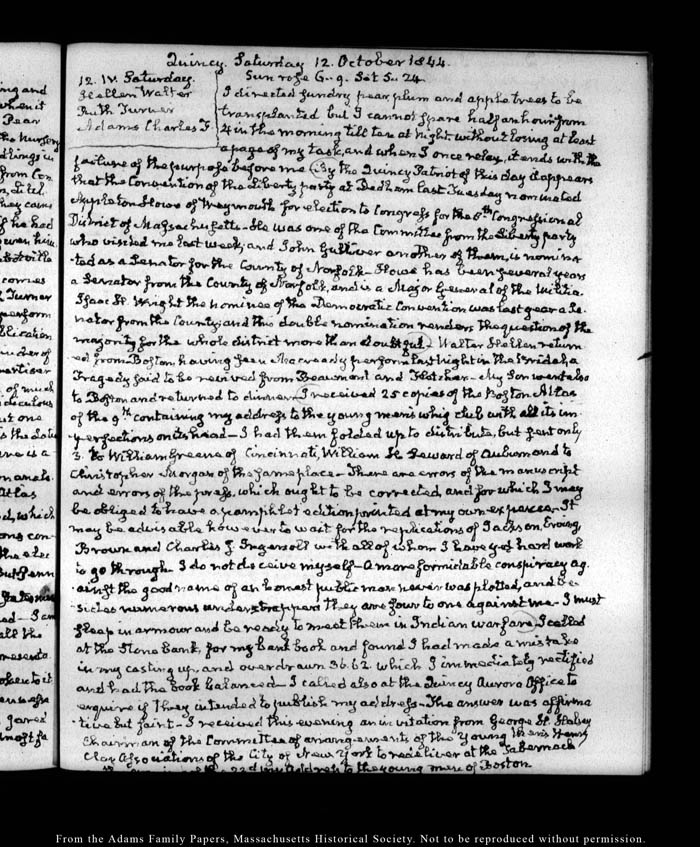 Quincy. Saturday 12. October 1844.
12. IV. Saturday.
Hellen Walter
Ruth Turner
Adams Charles F.
Sun rose 6.. 9. Set 5.. 24.
I directed sundry pear, plum and apple trees to be
transplanted but I cannot spare half an hour from
4 in the morning till ten at night, without losing at least
a page of my task, and when I once relax, it ends with the
failure of the purpose before me. By the Quincy Patriot of this day it appears
that the Convention of the Liberty party at Dedham last Tuesday nominated
Appleton Howe of Weymouth for election to Congress for the 8th Congressional
District of Massachusetts - He was one of the Committee from the Liberty party
who visited me last week, and John Gulliver another of them, is nomina
ted as a Senator for the County of Norfolk - Howe has been several years
a Senator from the County of Norfolk, and is a Major General of the Militia.
Isaac H. Wright the nominee of the Democratic Convention was last year a Se-
nator from the County; and this double nomination renders the question of the
majority for the whole district more than doubtful. Walter Hellen return
ed from Boston, having seen Macready perform last night in the Bridal, a
Tragedy said to be revived from Beaumont and Fletcher - My Son went also
to Boston and returned to dinner. I received 25 copies of the Boston Atlas
of the 9th containing my address to the young men's whig club with all its im-
perfections on its head - I had them folded up to distribute, but sent only
3. to William Greene of Cincinnati, William H. Seward of Auburn and to
Christopher Morgan of the same place - There are errors of the manuscript
and errors of the press, which ought to be corrected, and for which I may
be obliged to have a pamphlet edition printed at my own expence - It
may be advisable however to wait for the replications of Jackson, Erving,
Brown and Charles J. Ingersoll with all of whom I have yet hard work
to go through. I do not deceive myself - A more formidable conspiracy ag-
ainst the good name of an honest public man never was plotted, and be-
sides numerous understrappers they are four to one against me - I must
sleep in armour and be ready to meet them in Indian warfare. I called
at the Stone bank, for my bank book and found I had made a mistake
in my casting up, and overdrawn 36.62 which I immediately rectified
and had the book balanced - I called also at the Quincy Aurora Office to
enquire if they intended to publish my address - The answer was affirma
tive but faint - I received this evening an invitation from George H.
Chairman of the Committee of arrangements of the Young Men's Henry
Clay Associations of the City of New York to redeliver at the Tabernacle
22d my Address to the young men of Boston
From the Adams Family Papers, Massachusetts Historical Society. Not to be reproduced without permission.